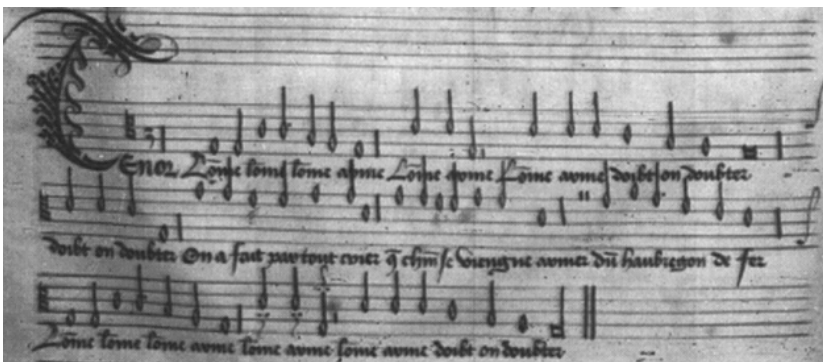 Tenor Lome lome lome arme Lome arme Lome arme doibt on doubter
doibt on doubter On a fait partout crier q chm̄ se viengne armer dun haubregon de fer
Lome lome lome arme lome arme lome arme doibt on doubter